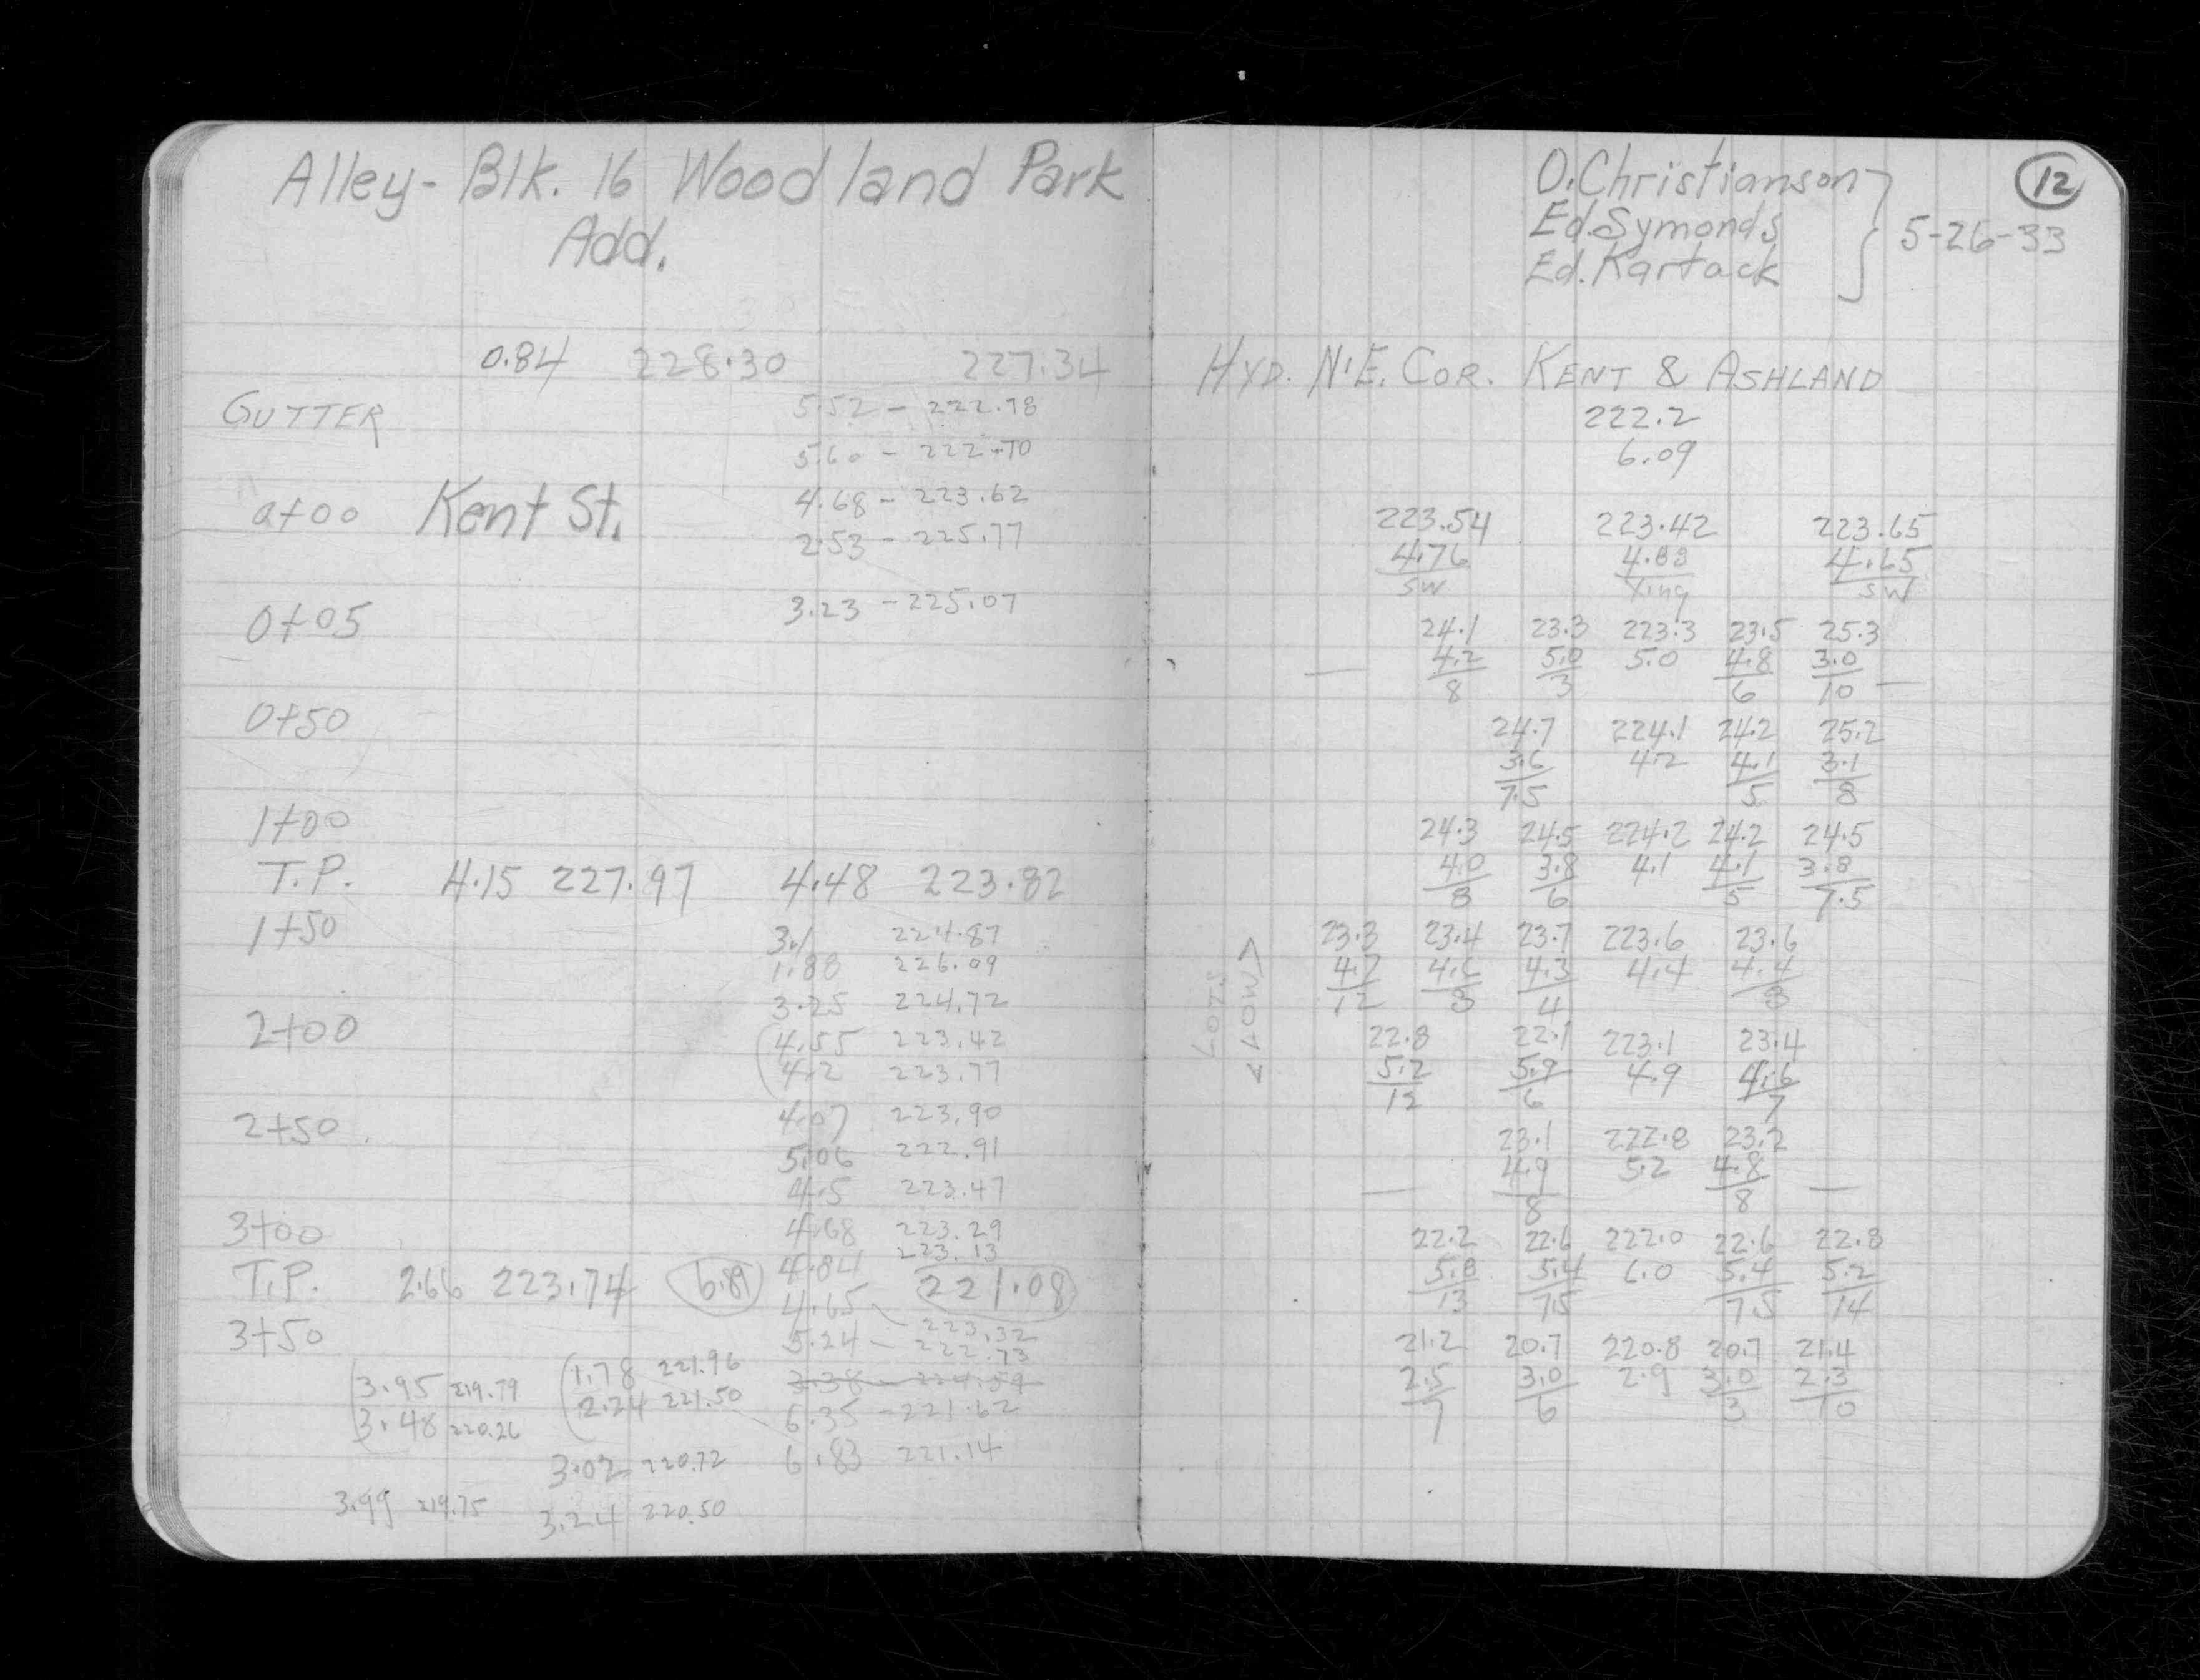 Alley - Blk. 16 Woodland Park
Add.
0.84 228.30 227.34
GUTTER 5.52 - 222.78
5.60 - 222.70
0+00 Kent St. 4.68 - 223.62
2.53 - 225.77
0+05 3.23 - 225.07
0+50
1+00
T.P. 4.15 227.97 4.48 223.82
1+50 3.1 224.87
1.88 226.09
3.25 224.72
2+00 4.55 223.42
4.2 223.77
2+50 4.07 223.90
5.06 222.91
4.5 223.47
3+00 4.68 223.29
4.84 223.13
T.P. 2.66 223.74 6.89 221.08
4.65 - 223.32
3+50 5.24 - 222.73
3.38 - 224.59
3.95 219.79 1.78 221.96
3.48 220.26 2.24 221.50 6.35 - 221.62
3.02 220.72 6.83 221.14
3.99 219.75 3.24 220.50
12
O. Christianson
Ed. Symonds
Ed. Kartack
5-26-33
HYD. N.E. COR. KENT & ASHLAND
222.2
6.09
223.54 223.42 223.65
4.76 4.88 4.65
SW Xing SW
24.1 23.3 223.3 23.5 25.3
4.2 5.0 5.0 4.8 3.0
8 3 6 10
24.7 224.1 24.2 25.2
3.6 4.2 4.1 3.1
7.5 5 8
24.3 24.5 224.2 24.2 24.5
4.0 3.8 4.1 4.1 3.8
8 6 5 7.5
LOTS
<LOW>
23.3 23.4 23.7 223.6 23.6
4.7 4.6 4.3 4.4 4.4
12 8 4 8
22.8 22.1 223.1 23.4
5.2 5.9 4.9 4.6
12 6 7
23.1 222.8 23.2
4.9 5.2 4.8
8 8
22.2 22.6 222.0 22.6 22.8
5.8 5.4 6.0 5.4 5.2
13 7.5 7.5 14
21.2 20.7 220.8 20.7 21.4
2.5 3.0 2.9 3.0 2.3
7 6 3 10